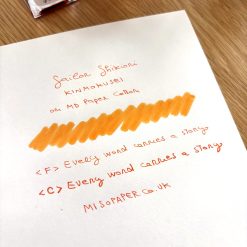 Sailor Shikiori
KINMOKUSEI
on MD Paper Cotton
<F> Every word carries a story
<C> Every word carries a story
MISOPAPER.CO.UK